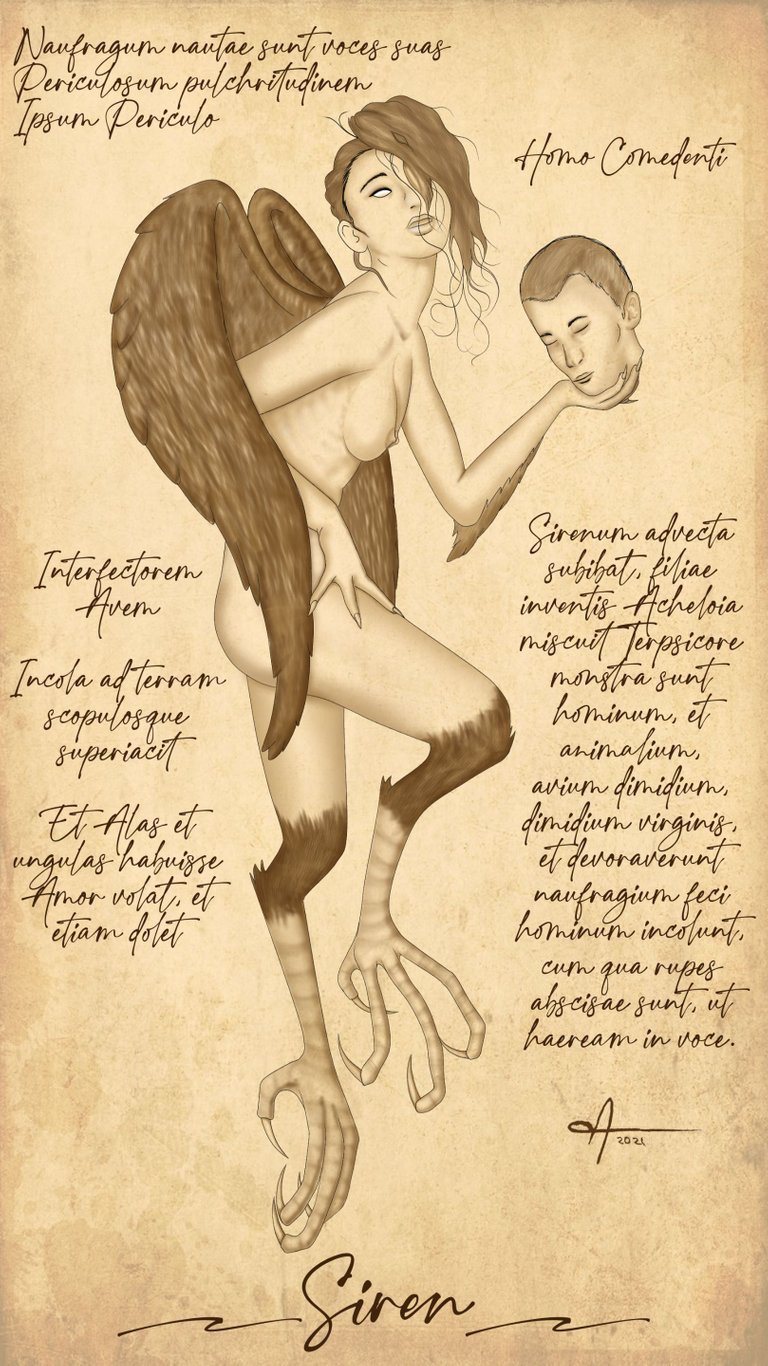 Naufragum nautae sunt voces suas
Periculosum pulchritudinem
Ipsum Periculo
Homo Comedenti
Interfectorem
Avem
Incola ad terram
scopulosque
superiacit
Et Alas et
ungulas habuisse
Amor volat, et
etiam dolet
Sirenum advecta
subibat, filiae
inventis Acheloia
miscuit Terpsicore
monstra sunt
hominum, et
animalium,
avium dimidium,
dimidium virginis,
et devoraverunt
naufragium feci
hominum incolunt,
cum qua rupes
abscisae sunt, ut
haeream in voce.
2021
Siren